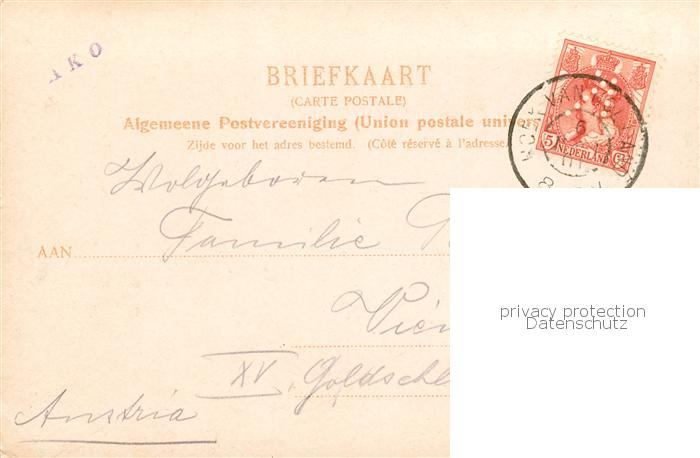 AKO
BRIEFKAART
(CARTE POSTALE)
Algemeene Postvereeniging (Union postale univers
Zijde voor het adres bestemd. (Côté réservé à l'adresse.
5 NEDERLAND Ct
HOEK VAN
Wolgeboren
AAN
Familie
Vien
XV, Goldschl
Austria
privacy protection
Datenschutz